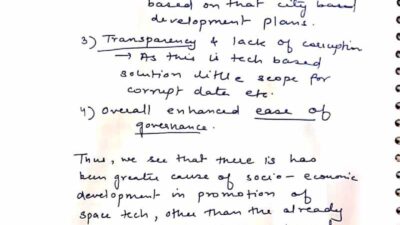 based on that city based
development plans.
3) Transparency & lack of corruption
→ As this is tech based
solution little scope for
corrupt date etc.
4) Overall enhanced ease of
governance.
Thus, we see that there is has
been greater cause of socio-economic
development in promotion of
space tech, other than the already